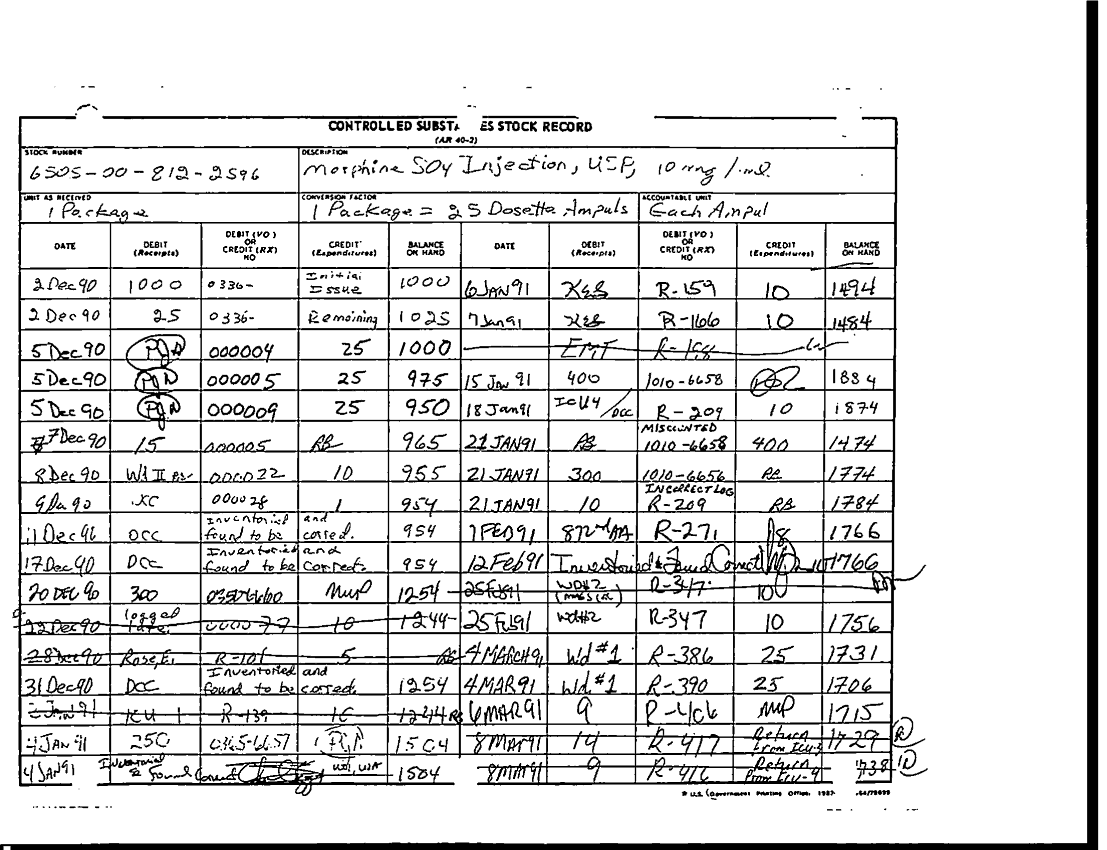 CONTROLLED SUBSTA ES STOCK RECORD
(AR 40-2)
STOCK NUMBER
6505-00-812-2596
DESCRIPTION
Morphine SO4 Injection, USP, 10 mg/ml
UNIT AS RECEIVED
1 Package
CONVERSION FACTOR
1 Package = 25 Dosette Ampuls
ACCOUNTABLE UNIT
Each Ampul
DATE DEBIT (Receipts) DEBIT (VO) OR CREDIT (RX) NO CREDIT (Expenditures) BALANCE ON HAND DATE DEBIT (Receipts) DEBIT (VO) OR CREDIT (RX) NO CREDIT (Expenditures) BALANCE ON HAND
2 Dec 90 1000 0336- Initial Issue 1000 6 JAN 91 R-159 10 1494
2 Dec 90 25 0336- Remaining 1025 7 Jan 91 R-166 10 1484
5 Dec 90 000004 25 1000
5 Dec 90 000005 25 975 15 Jan 91 400 1010-6658 1884
5 Dec 90 000009 25 950 18 Jan 91 ICU4/DCC R-209 10 1874
7 Dec 90 15 000005 RB 965 21 JAN 91 RB MISCOUNTED 1010-6658 400 1474
8 Dec 90 Wd II 000022 10 955 21 JAN 91 300 1010-6656 RB 1774
9 Dec 90 000028 1 954 21 JAN 91 10 INCORRECT LOG R-209 RB 1784
11 Dec 90 DCC Inventoried and found to be correct. 954 7 FEB 91 R-271 18 1766
17 Dec 90 DCC Inventoried and found to be correct. 954 12 Feb 91 Inventoried & Found Correct 1766
20 DEC 90 300 MWP 1254 25 Feb 91 WD#2 R-347 100
22 Dec 90 logged late. 000077 10 1244 25 Feb 91 Wd#2 R-347 10 1756
28 Dec 90 Rose, E. R-101 5 RB 4 MARCH 91 Wd #1 R-386 25 1731
31 Dec 90 DCC Inventoried and found to be correct. 1254 4 MAR 91 Wd. #1 R-390 25 1706
ICU 1 R-139 10 1244 6 MAR 91 9 R-406 MWP 1715
4 JAN 91 250 0365-6657 1504 8 MAR 91 14 R-417 Return from ICU-3 1729
4 JAN 91 Inventoried & found Correct 1504 8 MAR 91 9 R-416 Return from ICU-4 1738
* U.S. Government Printing Office: 1987-